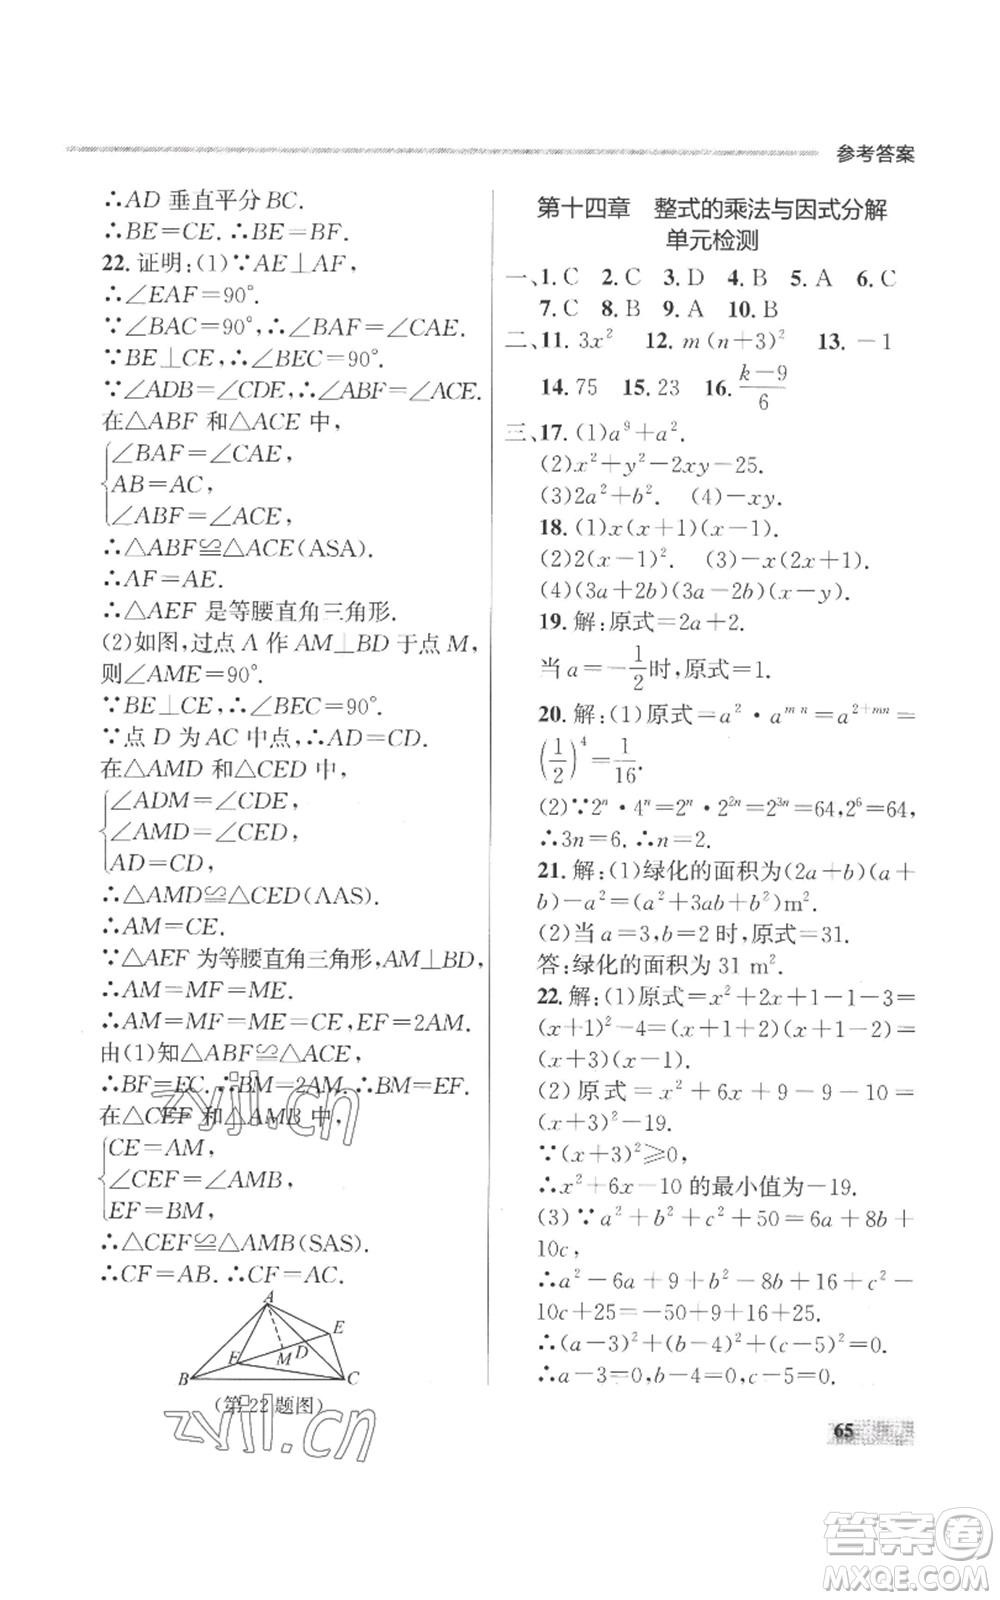 参考答案
∴AD 垂直平分 BC.
∴BE=CE. ∴BE=BF.
22. 证明:(1)∵AE⊥AF,
∴∠EAF=90°.
∵∠BAC=90°, ∴∠BAF=∠CAE.
∵BE⊥CE, ∴∠BEC=90°.
∵∠ADB=∠CDE, ∴∠ABF=∠ACE.
在△ABF 和△ACE 中,
∠BAF=∠CAE,
AB=AC,
∠ABF=∠ACE,
∴△ABF≌△ACE(ASA).
∴AF=AE.
∴△AEF 是等腰直角三角形.
(2)如图,过点 A 作 AM⊥BD 于点 M,
则∠AME=90°.
∵BE⊥CE, ∴∠BEC=90°.
∵点 D 为 AC 中点, ∴AD=CD.
在△AMD 和△CED 中,
∠ADM=∠CDE,
∠AMD=∠CED,
AD=CD,
∴△AMD≌△CED(AAS).
∴AM=CE.
∵△AEF 为等腰直角三角形, AM⊥BD,
∴AM=MF=ME.
∴AM=MF=ME=CE, EF=2AM.
由(1)知△ABF≌△ACE,
∴BF=EC. ∴BM=2AM. ∴BM=EF.
在△CEF 和△AMB 中,
CE=AM,
∠CEF=∠AMB,
EF=BM,
∴△CEF≌△AMB(SAS).
∴CF=AB. ∴CF=AC.
A
E
F M D
B C
(第 22 题图)
第十四章 整式的乘法与因式分解
单元检测
一、1. C 2. C 3. D 4. B 5. A 6. C
7. C 8. B 9. A 10. B
二、11. 3x² 12. m(n+3)² 13. −1
14. 75 15. 23 16. (k−9)/6
三、17. (1)a⁹+a².
(2)x²+y²−2xy−25.
(3)2a²+b². (4)−xy.
18. (1)x(x+1)(x−1).
(2)2(x−1)². (3)−x(2x+1).
(4)(3a+2b)(3a−2b)(x−y).
19. 解:原式=2a+2.
当 a=−1/2 时,原式=1.
20. 解:(1)原式=a²·aᵐⁿ=a²⁺ᵐⁿ=
(1/2)⁴=1/16.
(2)∵2ⁿ·4ⁿ=2ⁿ·2²ⁿ=2³ⁿ=64, 2⁶=64,
∴3n=6. ∴n=2.
21. 解:(1)绿化的面积为(2a+b)(a+
b)−a²=(a²+3ab+b²)m².
(2)当 a=3, b=2 时,原式=31.
答:绿化的面积为 31 m².
22. 解:(1)原式=x²+2x+1−1−3=
(x+1)²−4=(x+1+2)(x+1−2)=
(x+3)(x−1).
(2)原式=x²+6x+9−9−10=
(x+3)²−19.
∵(x+3)²⩾0,
∴x²+6x−10 的最小值为−19.
(3)∵a²+b²+c²+50=6a+8b+
10c,
∴a²−6a+9+b²−8b+16+c²−
10c+25=−50+9+16+25.
∴(a−3)²+(b−4)²+(c−5)²=0.
∴a−3=0, b−4=0, c−5=0.
65
zyjl.cn
zyjl.cn
答案圈
MXQE.COM